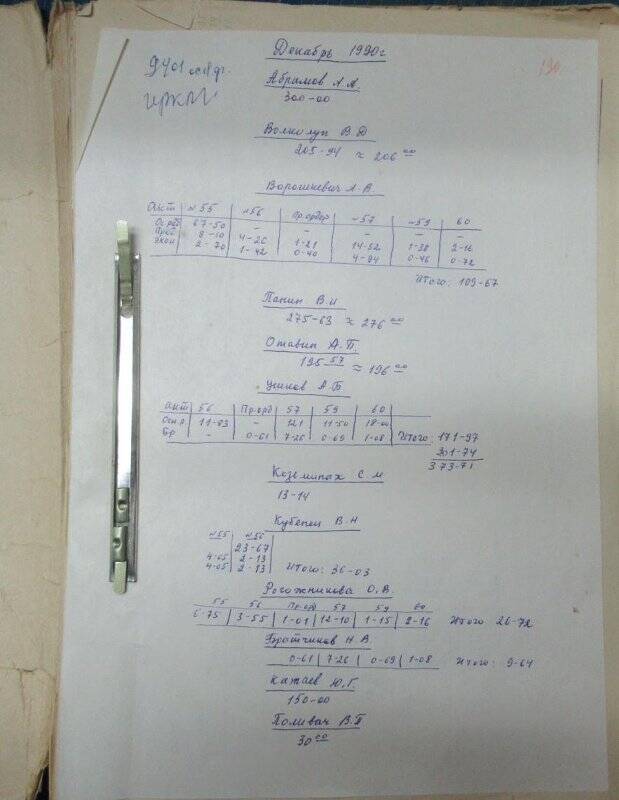 Декабрь 1990г
130
Абрамов А.А.
300-00
Волколуп В.Д
205-94 ≈ 206 00
Ворошкевич А.В.
Акт №55 №56 Пр.ордер №57 №59 60
67-50 – – – – –
8-10 4-26 1-21 14-52 1-38 2-16
2-70 1-42 0-40 4-84 0-46 0-72
Итого: 109-67
Панин В.И
275-63 ≈ 276 00
Отавин А.П.
195 57 ≈ 196 00
Ушков А.Б
Акт 56 Пр.орд 57 59 60
11-83 – 121 11-50 18-00
– 0-61 7-26 0-69 1-08 Итого: 171-97
201-74
373-71
С.М
13-14
Кубенин В.Н
№55 №56
23-67
4-05 2-13
4-05 2-13 Итого: 36-03
Рогожникова О.В.
55 56 Пр.орд 57 59 60
6-75 3-55 1-01 12-10 1-15 2-16 Итого 26-72
Братчиков Н.В
0-61 7-26 0-69 1-08 Итого: 9-64
Катаев Ю.Г.
150-00
Поливач В.П
30 00